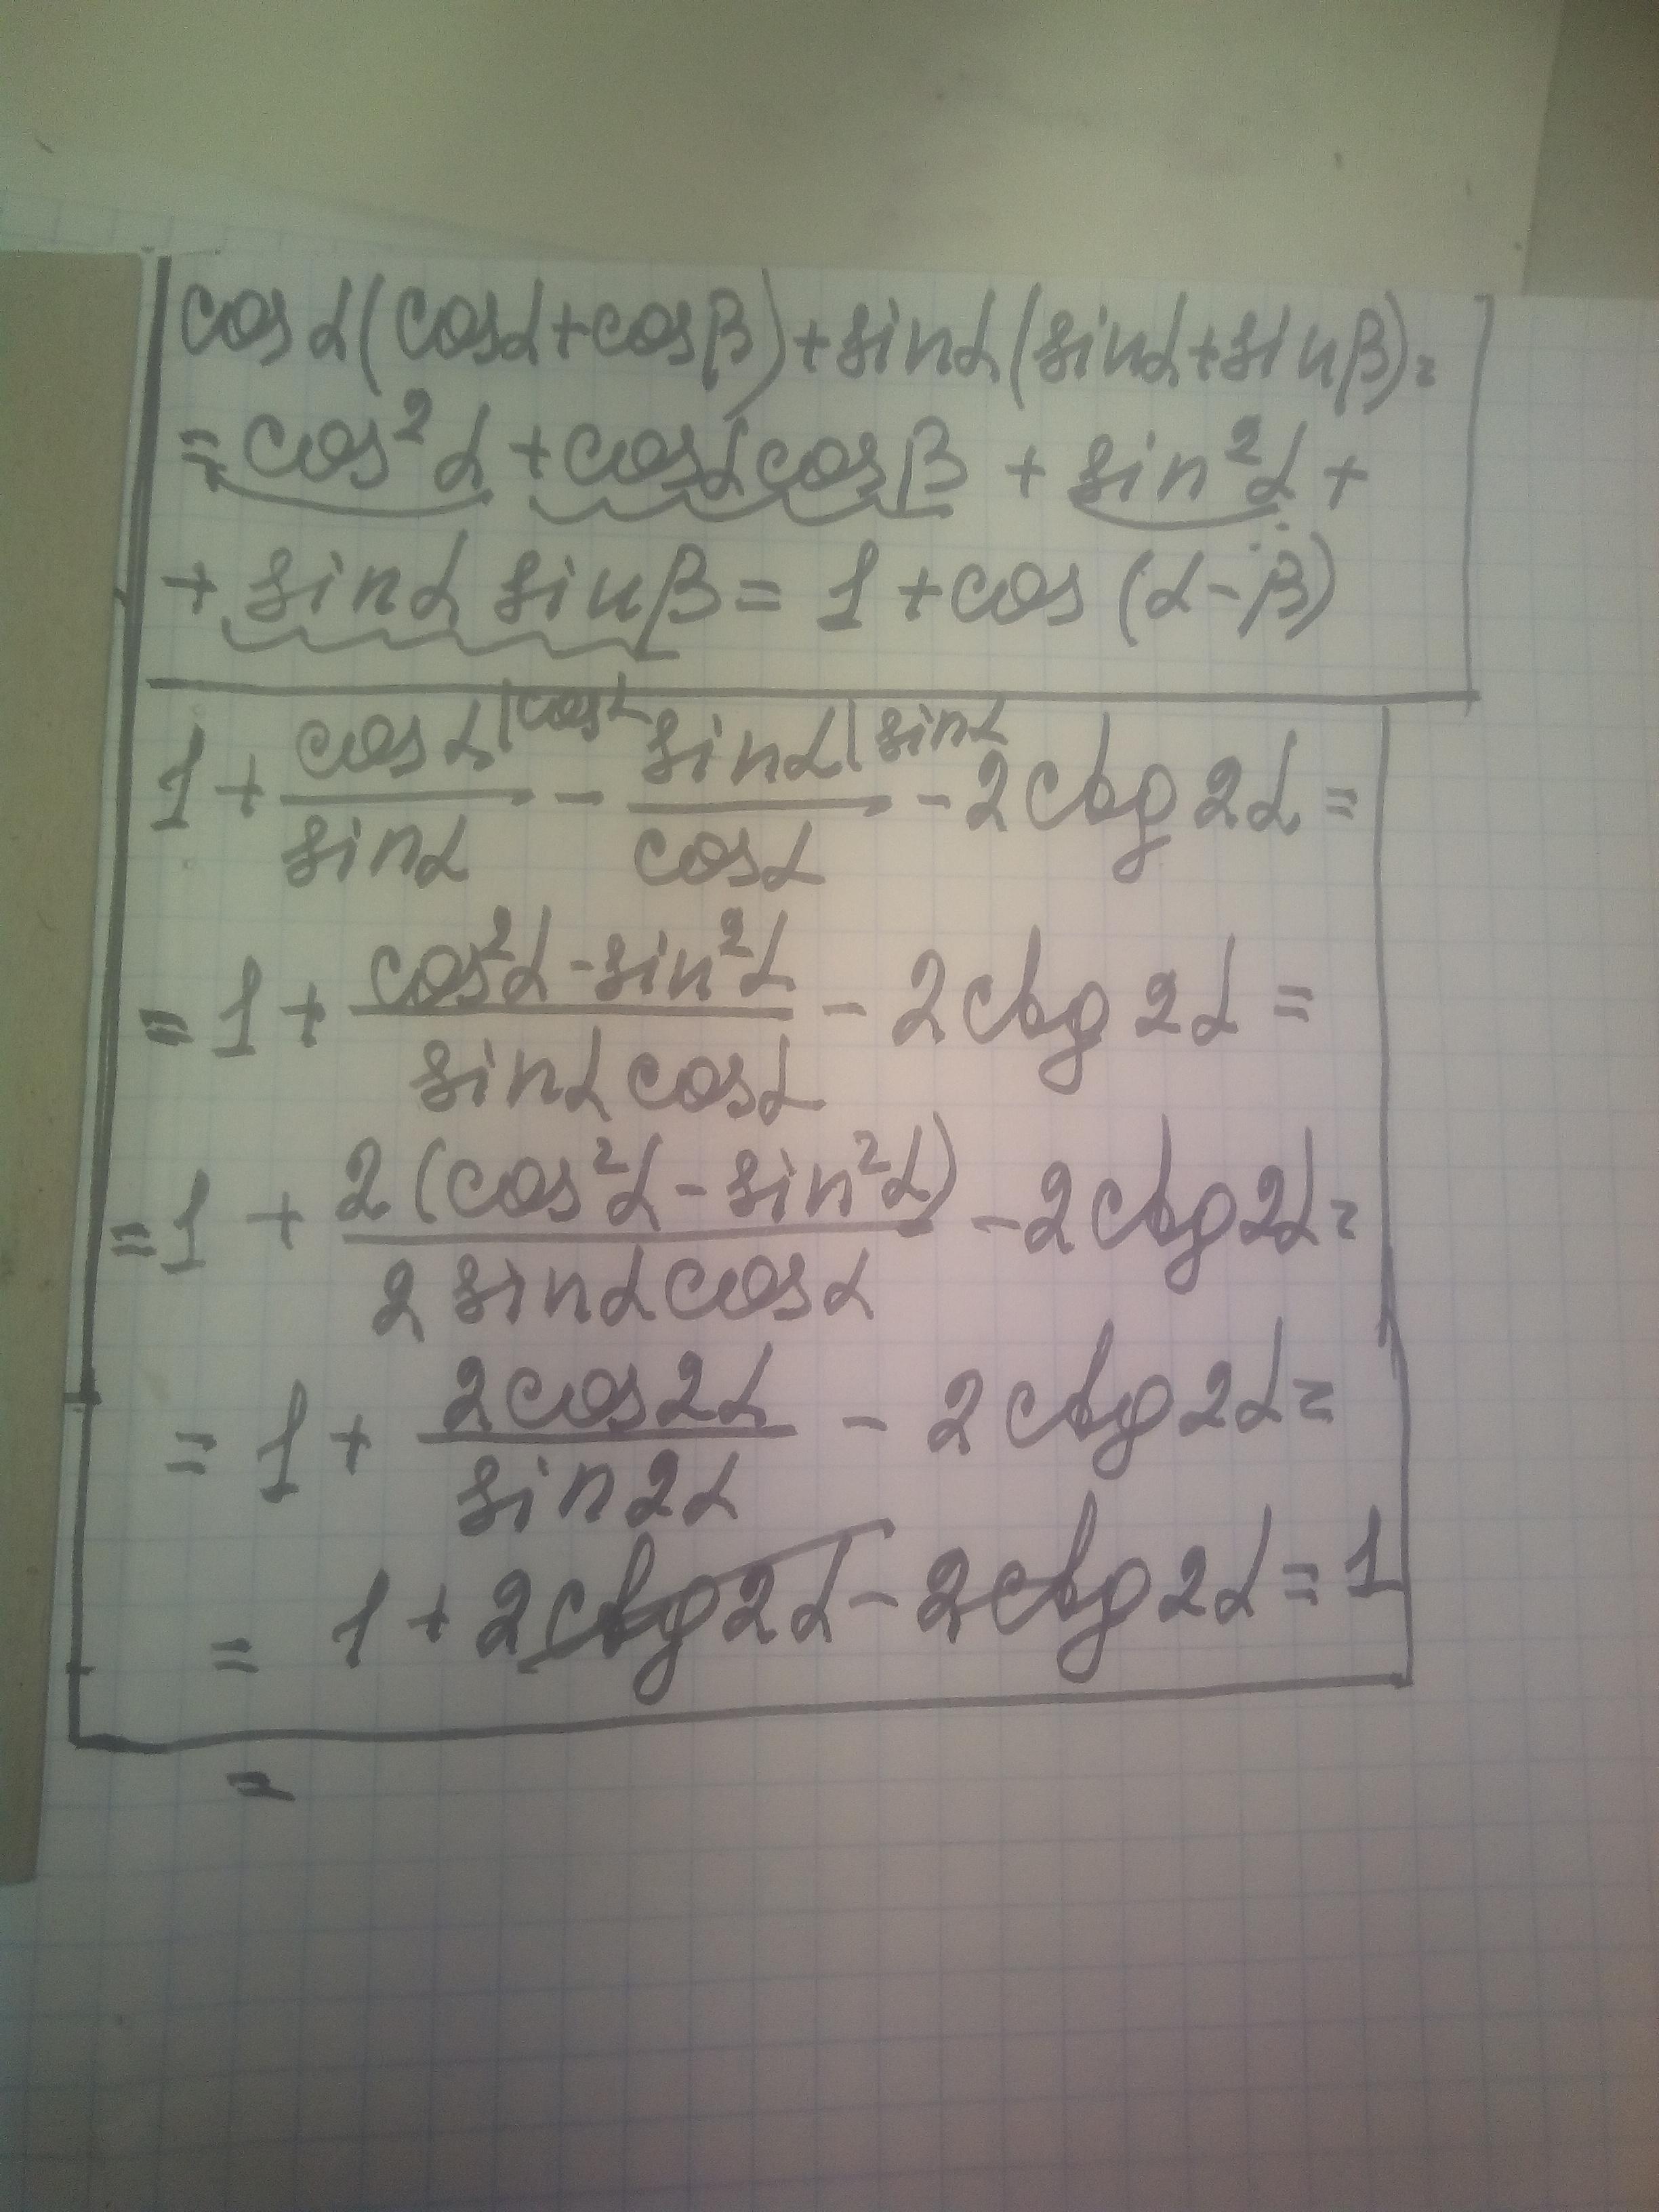 cos α(cosα+cosβ)+sinα(sinα+sinβ)=
=cos²α+cosαcosβ+sin²α+
+sinα sinβ=1+cos(α-β)
1+cosα|cosα/sinα-sinα|sinα/cosα-2ctg2α=
=1+(cos²α-sin²α)/(sinαcosα)-2ctg2α=
=1+2(cos²α-sin²α)/(2sinαcosα)-2ctg2α=
=1+2cos2α/sin2α-2ctg2α=
=1+2ctg2α-2ctg2α=1
=